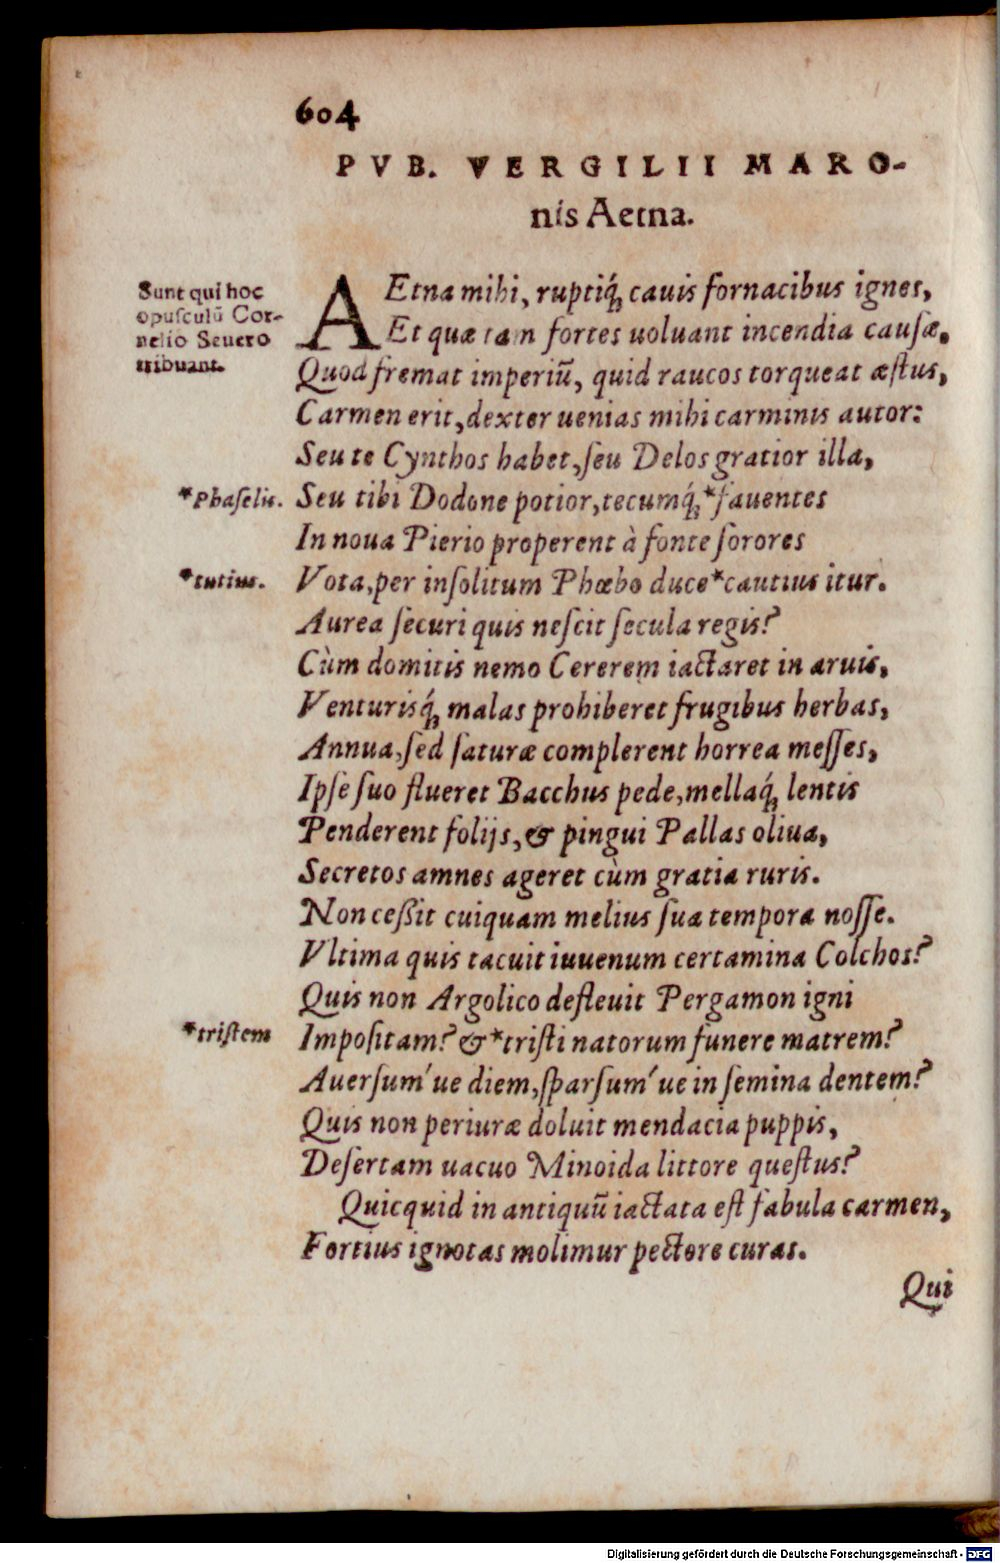 604
PVB. VERGILII MARO-
nis Aetna.
Sunt qui hoc
opusculū Cor-
nelio Seuero
tribuant.
AEtna mihi, ruptiq́; cauis fornacibus ignes,
Et quæ tam fortes uoluant incendia causæ.
Quod fremat imperiū, quid raucos torqueat æstus,
Carmen erit, dexter uenias mihi carminis autor:
Seu te Cynthos habet, seu Delos gratior illa,
*Phaselis.
Seu tibi Dodone potior, tecumq́; *fauentes
In noua Pierio properent à fonte sorores
*tutius.
Vota, per insolitum Phœbo duce *cautius itur.
Aurea securi quis nescit secula regis?
Cùm domitis nemo Cererem iactaret in aruis,
Venturisq́; malas prohiberet frugibus herbas,
Annua, sed saturæ complerent horrea messes,
Ipse suo flueret Bacchus pede, mellaq́; lentis
Penderent folijs, & pingui Pallas oliua,
Secretos amnes ageret cùm gratia ruris.
Non ceßit cuiquam melius sua tempora nosse.
Vltima quis tacuit iuuenum certamina Colchos?
Quis non Argolico defleuit Pergamon igni
*tristem
Impositam? & *tristi natorum funere matrem?
Auersum'ue diem, sparsum'ue in semina dentem?
Quis non periuræ doluit mendacia puppis,
Desertam uacuo Minoida littore questus?
Quicquid in antiquū iactata est fabula carmen,
Fortius ignotas molimur pectore curas.
Qui
Digitalisierung gefördert durch die Deutsche Forschungsgemeinschaft - DFG